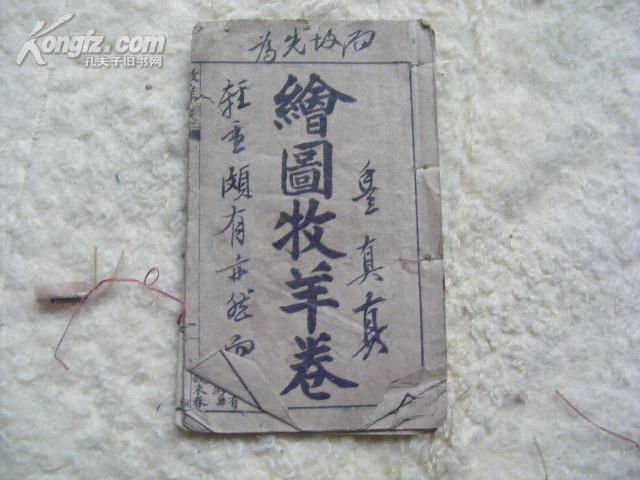 Kongfz.com
孔夫子旧书网
為先坟而
皇真真
繪圖牧羊卷
輕重頗有亦然而